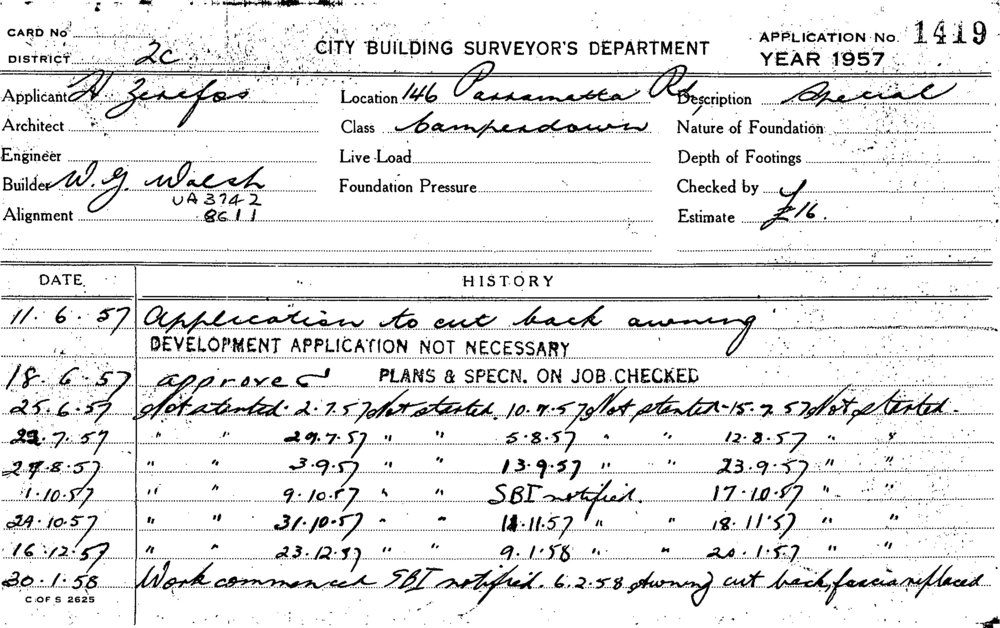 CARD No CITY BUILDING SURVEYOR'S DEPARTMENT APPLICATION No. 1419
DISTRICT 2C YEAR 1957
Applicant H Zerefos Location 146 Parramatta Rd, Description Special
Architect Class Camperdown Nature of Foundation
Engineer Live Load Depth of Footings
Builder W. G. Walsh Foundation Pressure Checked by
UA 3742
Alignment 8611 Estimate £16.
DATE HISTORY
11.6.57 Application to cut back awning
DEVELOPMENT APPLICATION NOT NECESSARY
18.6.57 approved PLANS & SPECN. ON JOB CHECKED
25.6.57 Not started. 2.7.57 Not started. 10.7.57 Not started. 15.7.57 Not started.
22.7.57 " " 29.7.57 " " 5.8.57 " " 12.8.57 " "
27.8.57 " " 3.9.57 " " 13.9.57 " " 23.9.57 " "
1.10.57 " " 9.10.57 " " SBI notified. 17.10.57 " "
24.10.57 " " 31.10.57 " " 11.11.57 " " 18.11.57 " "
16.12.57 " " 23.12.57 " " 9.1.58 " " 20.1.57 " "
30.1.58 Work commenced SBI notified. 6.2.58 Awning cut back, fascia replaced
C OF S 2625